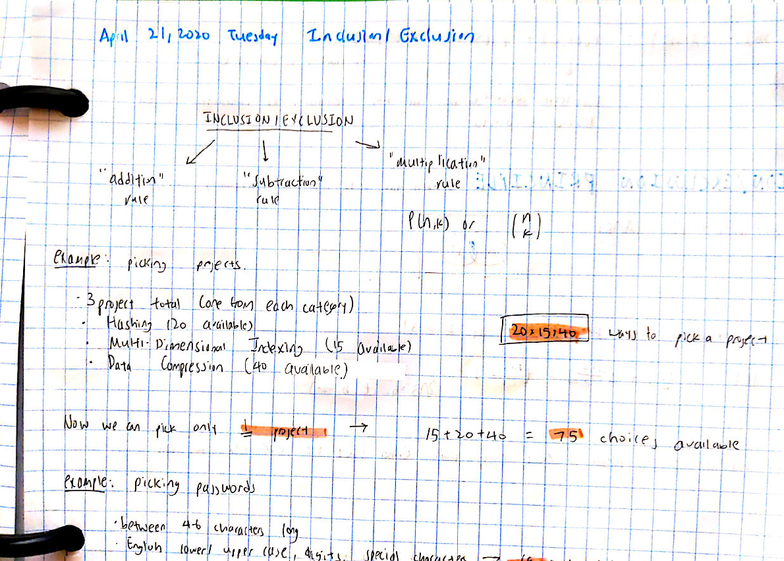 April 21, 2020 Tuesday Inclusion/Exclusion
INCLUSION/EXCLUSION
"addition" rule
"subtraction" rule
"multiplication" rule
P(n,k) or (n k)
example: picking projects.
· 3 project total (one from each category)
· Hashing (20 available)
· Multi-Dimensional Indexing (15 available)
· Data Compression (40 available)
20×15×40 ways to pick a project
Now we can pick only 1 project → 15+20+40 = 75 choices available
example: picking passwords
· between 4-6 characters long
· English lower/upper case, digits, special character →